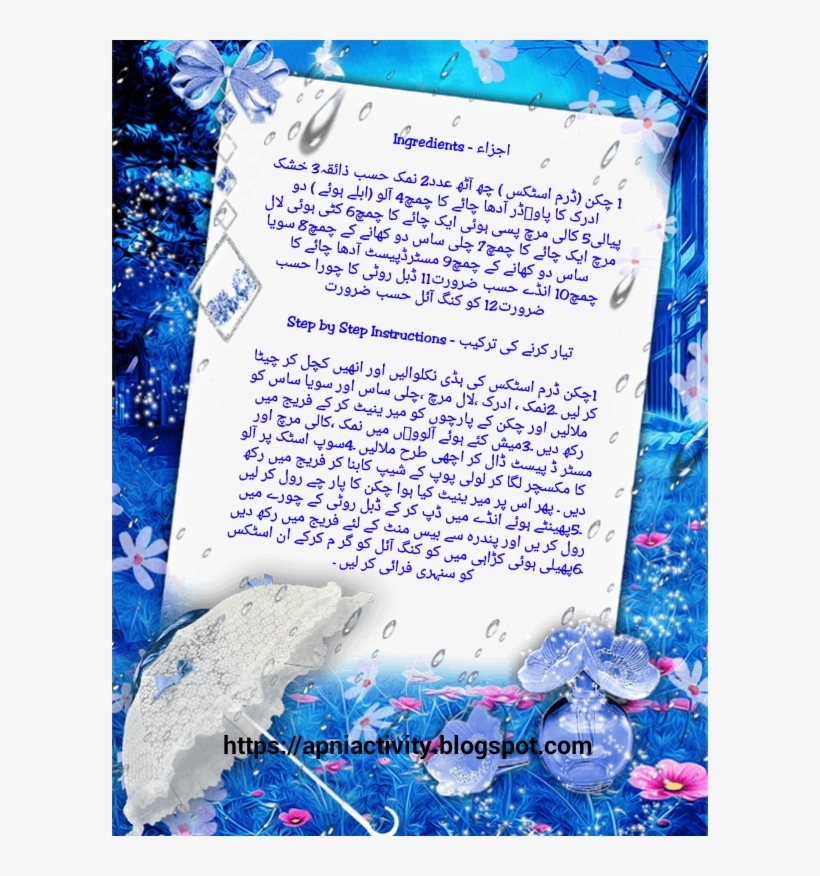 Ingredients - اجزاء
1 چکن (ڈرم اسٹکس ) چھ آٹھ عدد2 نمک حسب ذائقہ3 خشک
ادرک کا پاو▯ڈر آدھا چائے کا چمچ4 آلو (ابلے ہوئے ) دو
پیالی5 کالی مرچ پسی ہوئی ایک چائے کا چمچ6 کٹی ہوئی لال
مرچ ایک چائے کا چمچ7 چلی ساس دو کھانے کے چمچ8 سویا
ساس دو کھانے کے چمچ9 مسٹرڈپیسٹ آدھا چائے کا
چمچ10 انڈے حسب ضرورت11 ڈبل روٹی کا چورا حسب
ضرورت12 کو کنگ آئل حسب ضرورت
Step by Step Instructions - تیار کرنے کی ترکیب
1چکن ڈرم اسٹکس کی ہڈی نکلوالیں اور انھیں کچل کر چپٹا
کر لیں ۔2نمک ، ادرک ،لال مرچ ،چلی ساس اور سویا ساس کو
ملالیں اور چکن کے پارچوں کو میر ینیٹ کر کے فریج میں
رکھ دیں ۔3میش کئے ہوئے آلوو▯ں میں نمک ،کالی مرچ اور
مسٹر ڈ پیسٹ ڈال کر اچھی طرح ملالیں ۔4سوپ اسٹک پر آلو
کا مکسچر لگا کر لولی پوپ کے شیپ کابنا کر فریج میں رکھ
دیں ۔ پھر اس پر میر ینیٹ کیا ہوا چکن کا پار چے رول کر لیں
۔5پھینٹے ہوئے انڈے میں ڈپ کر کے ڈبل روٹی کے چورے میں
رول کر یں اور پندرہ سے بیس منٹ کے لئے فریج میں رکھ دیں
۔6پھیلی ہوئی کڑاہی میں کو کنگ آئل کو گر م کرکے ان اسٹکس
کو سنہری فرائی کر لیں ۔
https://apniactivity.blogspot.com